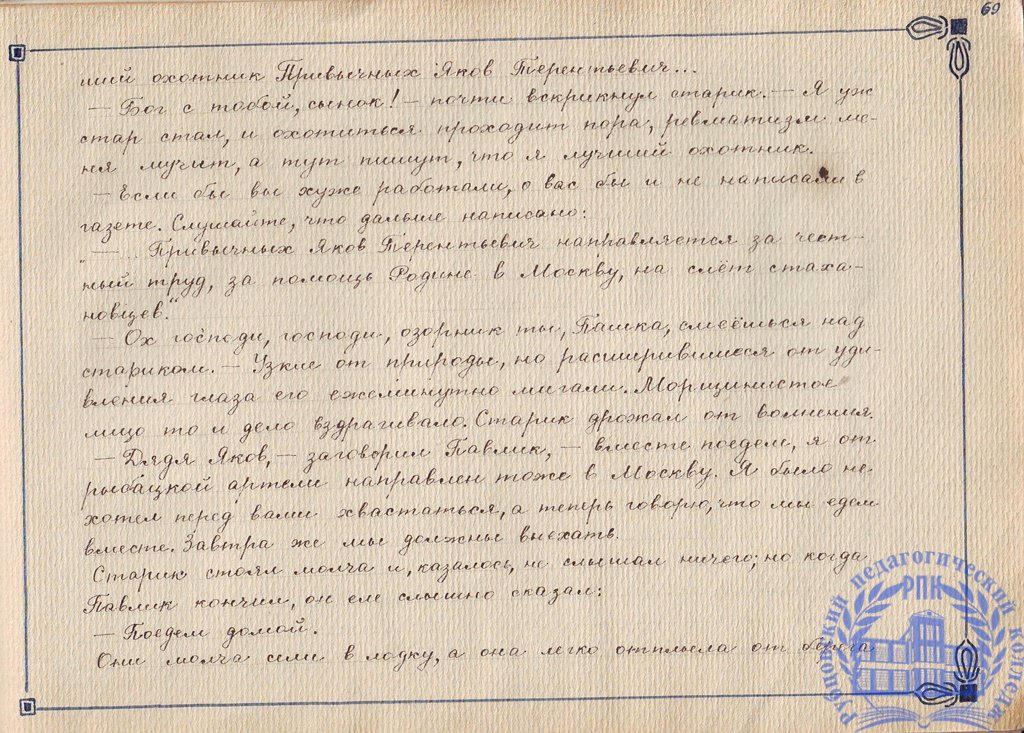 69
ший охотник Привычных Яков Терентьевич...
— Бог с тобой, сынок! — почти вскрикнул старик. — Я уж
стар стал, и охотиться проходит пора, ревматизм ме-
ня мучит, а тут пишут, что я лучший охотник.
— Если бы вы хуже работали, о вас бы и не написали в
газете. Слушайте, что дальше написано:
„— ... Привычных Яков Терентьевич направляется за чест-
ный труд, за помощь Родине в Москву, на слёт стаха-
новцев.“
— Ох господи, господи, озорник ты, Пашка, смеёшься над
стариком. — Узкие от природы, но расширившиеся от уди-
вления глаза его ежеминутно мигали. Морщинистое
лицо то и дело вздрагивало. Старик дрожал от волнения.
— Дядя Яков, — заговорил Павлик, — вместе поедем, я от
рыбацкой артели направлен тоже в Москву. Я было не
хотел перед вами хвастаться, а теперь говорю, что мы едем
вместе. Завтра же мы должны выехать.
Старик стоял молча и, казалось, не слышал ничего; но когда
Павлик кончил, он еле слышно сказал:
— Поедем домой.
Они молча сели в лодку, а она легко отплыла от берега
Рубцовский педагогический колледж
РПК